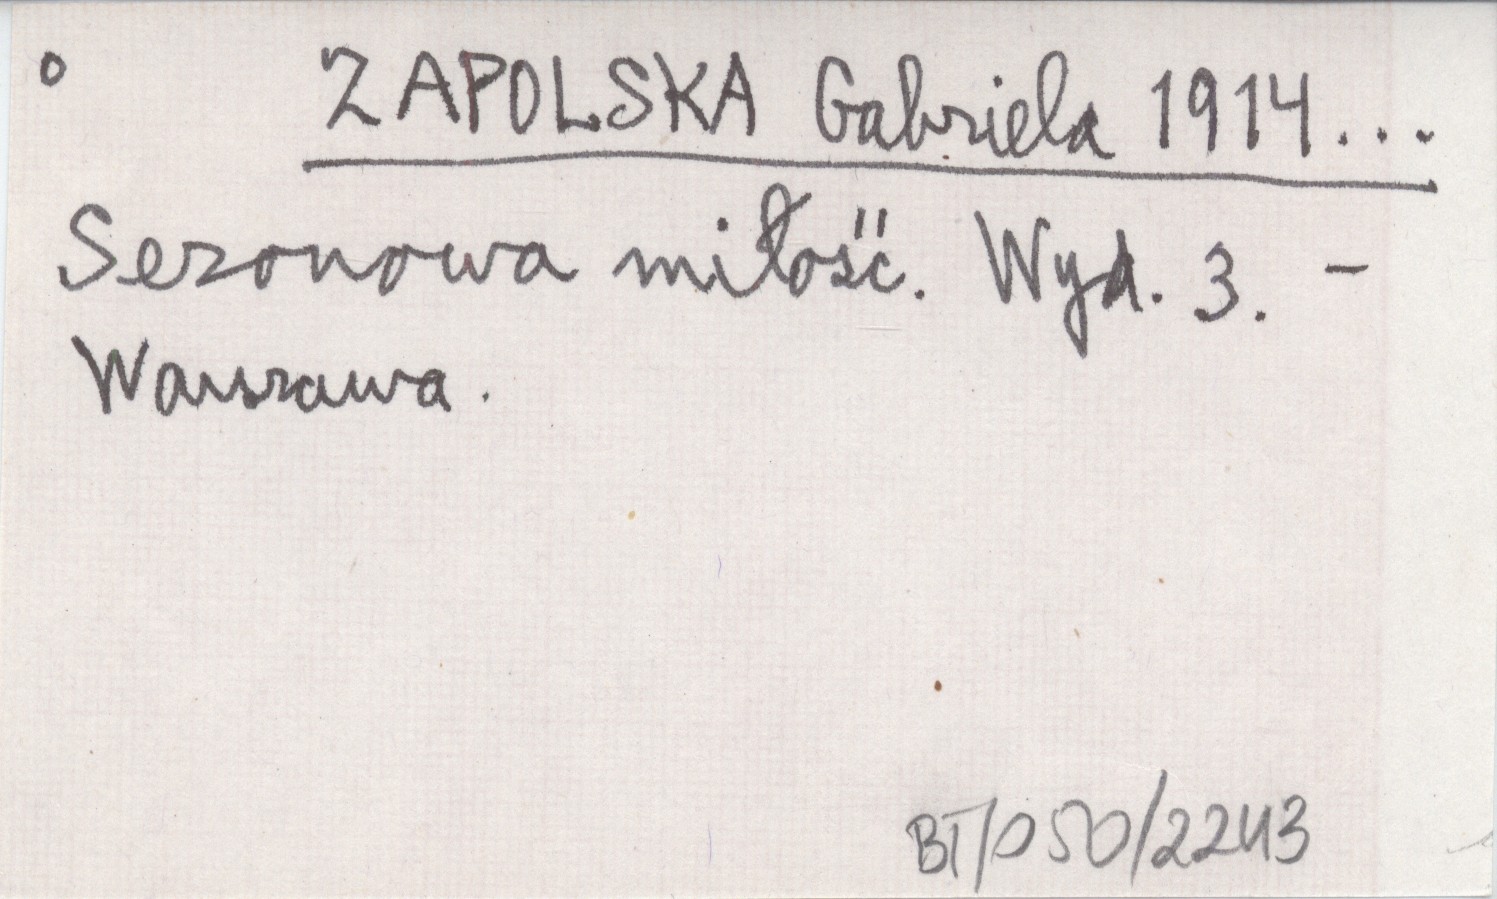 ° ZAPOLSKA Gabriela 1914...
Sezonowa miłość. Wyd. 3. –
Warszawa.
BT/050/2243